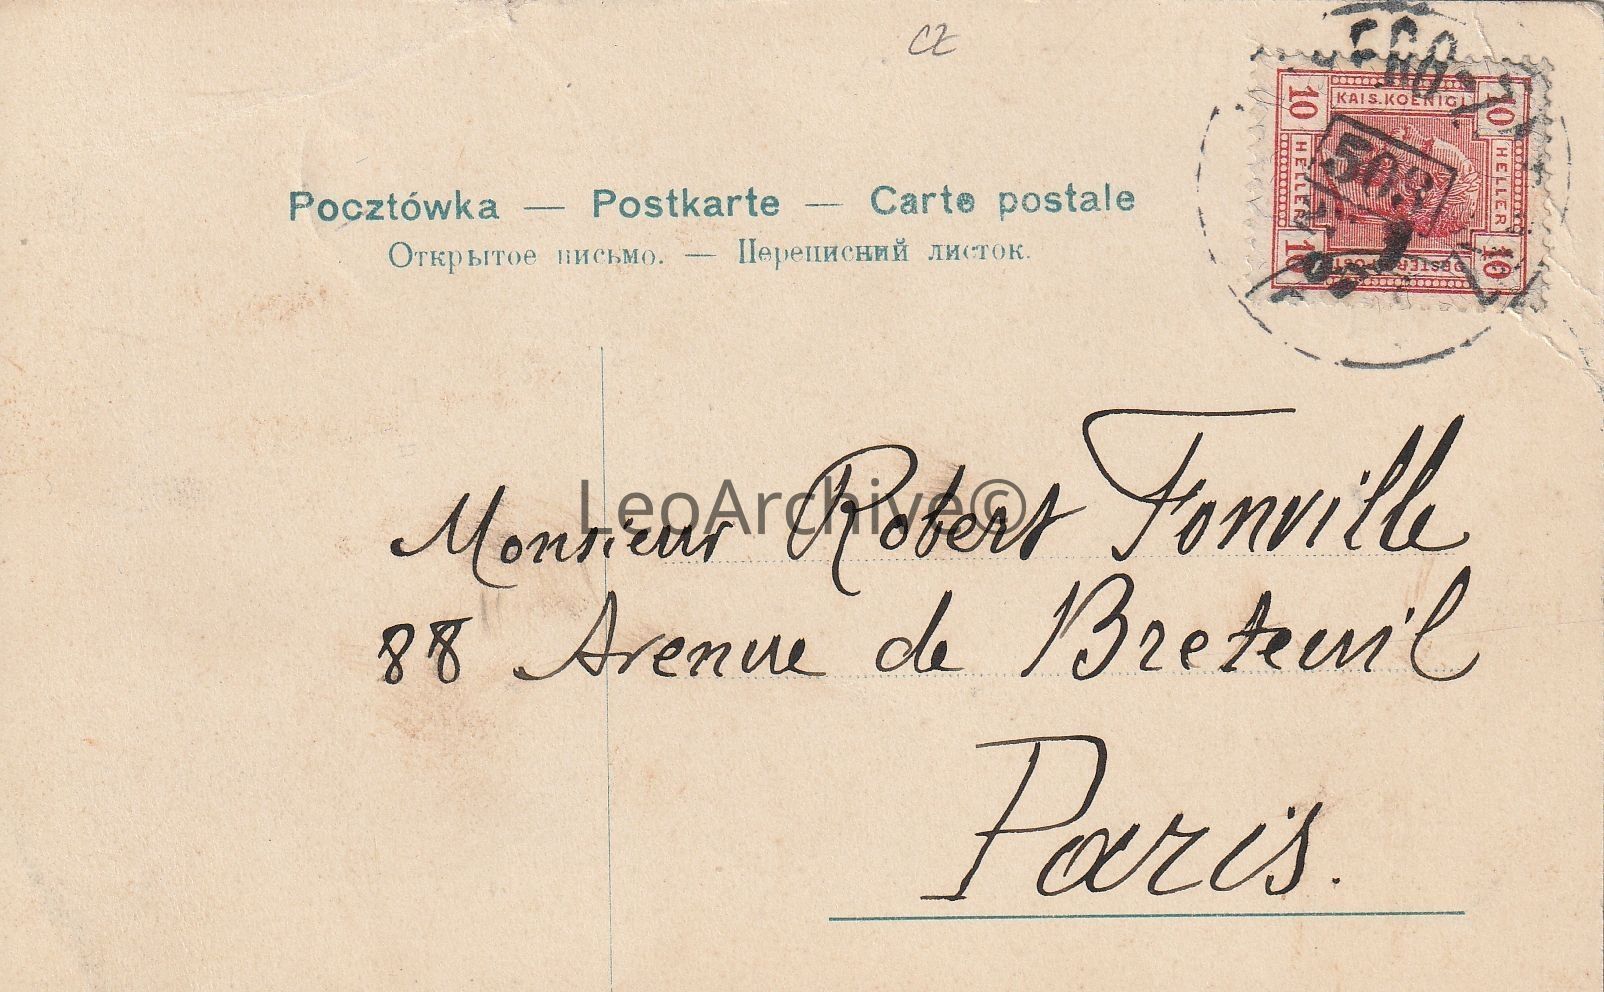 CZ
Pocztówka — Postkarte — Carte postale
Открытое письмо. — Переписний листок.
10 KAIS.KOENIGL 10
HELLER HELLER
503
10 10
LeoArchive©
Monsieur Robert Fonville
88 Avenue de Breteuil
Paris.